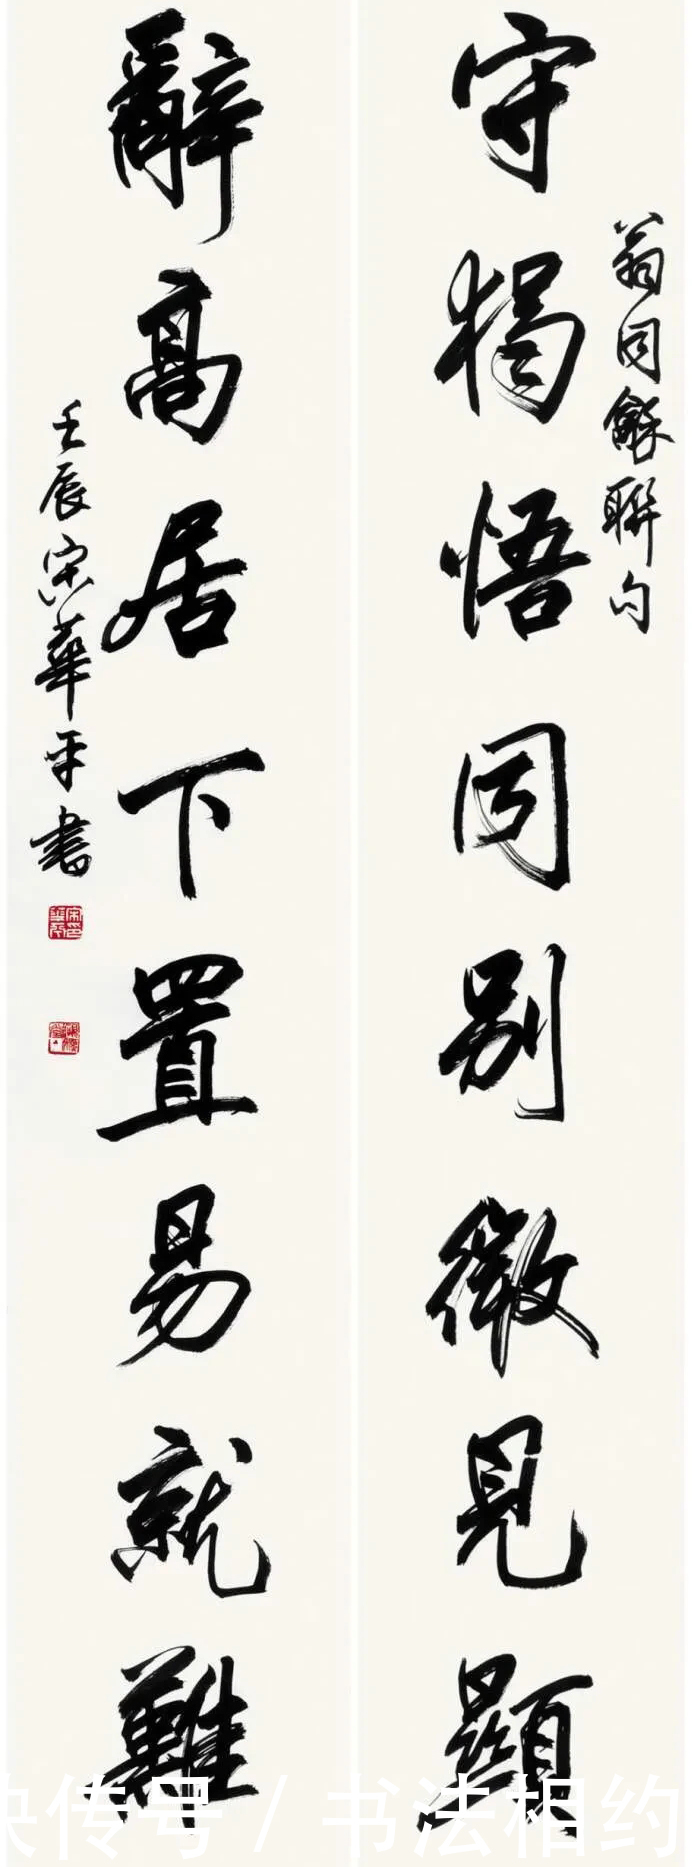 守獨悟同別微見顯
翁同龢聯句
辭高居下置易就難
壬辰宋華平書
快传号 / 书法相约